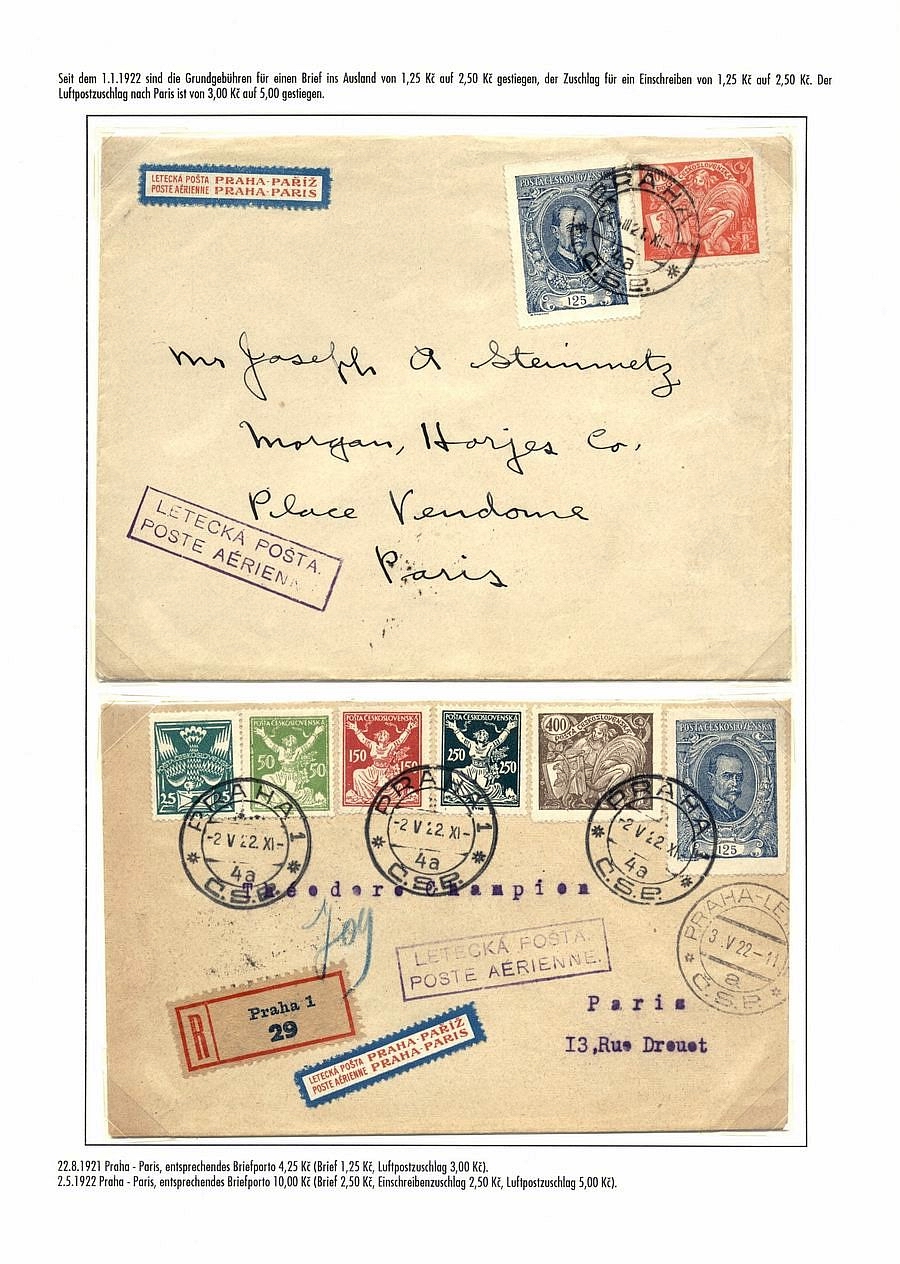 Seit dem 1.1.1922 sind die Grundgebühren für einen Brief ins Ausland von 1,25 Kč auf 2,50 Kč gestiegen, der Zuschlag für ein Einschreiben von 1,25 Kč auf 2,50 Kč. Der
Luftpostzuschlag nach Paris ist von 3,00 Kč auf 5,00 gestiegen.
LETECKÁ POŠTA PRAHA-PAŘÍŽ
POSTE AÉRIENNE PRAHA-PARIS
POŠTA ČESKOSLOVENSKÁ
125
PRAHA
21.XI-
4a
Č.S.P.
Mr Joseph A Steinmetz
Morgan, Harjes Co.
Place Vendome
Paris
LETECKÁ POŠTA.
POSTE AÉRIENN
25
POŠTA ČESKOSLOVENSKÁ
50 50
POŠTA ČESKOSLOVENSKÁ
150 150
POŠTA ČESKOSLOVENSKÁ
250 250
400
POŠTA ČESKOSLOVENSKÁ
125
PRAHA 1
-2 V 22. XI-
4a
Č.S.P.
PRAHA 1
-2 V 22. XI-
4a
Č.S.P.
PRAHA 1
-2 V 22. XI-
4a
Č.S.P.
Theodore Champion
PRAHA-LE
3.V 22-11
a
Č.S.P.
LETECKÁ POŠTA.
POSTE AÉRIENNE.
R Praha 1
29
Paris
13,Rue Drouot
LETECKÁ POŠTA PRAHA-PAŘÍŽ
POSTE AÉRIENNE PRAHA-PARIS
22.8.1921 Praha - Paris, entsprechendes Briefporto 4,25 Kč (Brief 1,25 Kč, Luftpostzuschlag 3,00 Kč).
2.5.1922 Praha - Paris, entsprechendes Briefporto 10,00 Kč (Brief 2,50 Kč, Einschreibenzuschlag 2,50 Kč, Luftpostzuschlag 5,00 Kč).